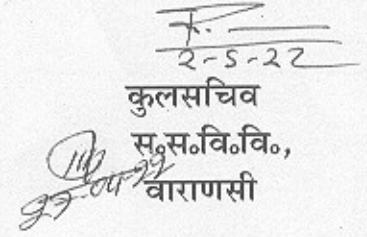 2-5-22
कुलसचिव
स॰स॰वि॰वि॰,
वाराणसी